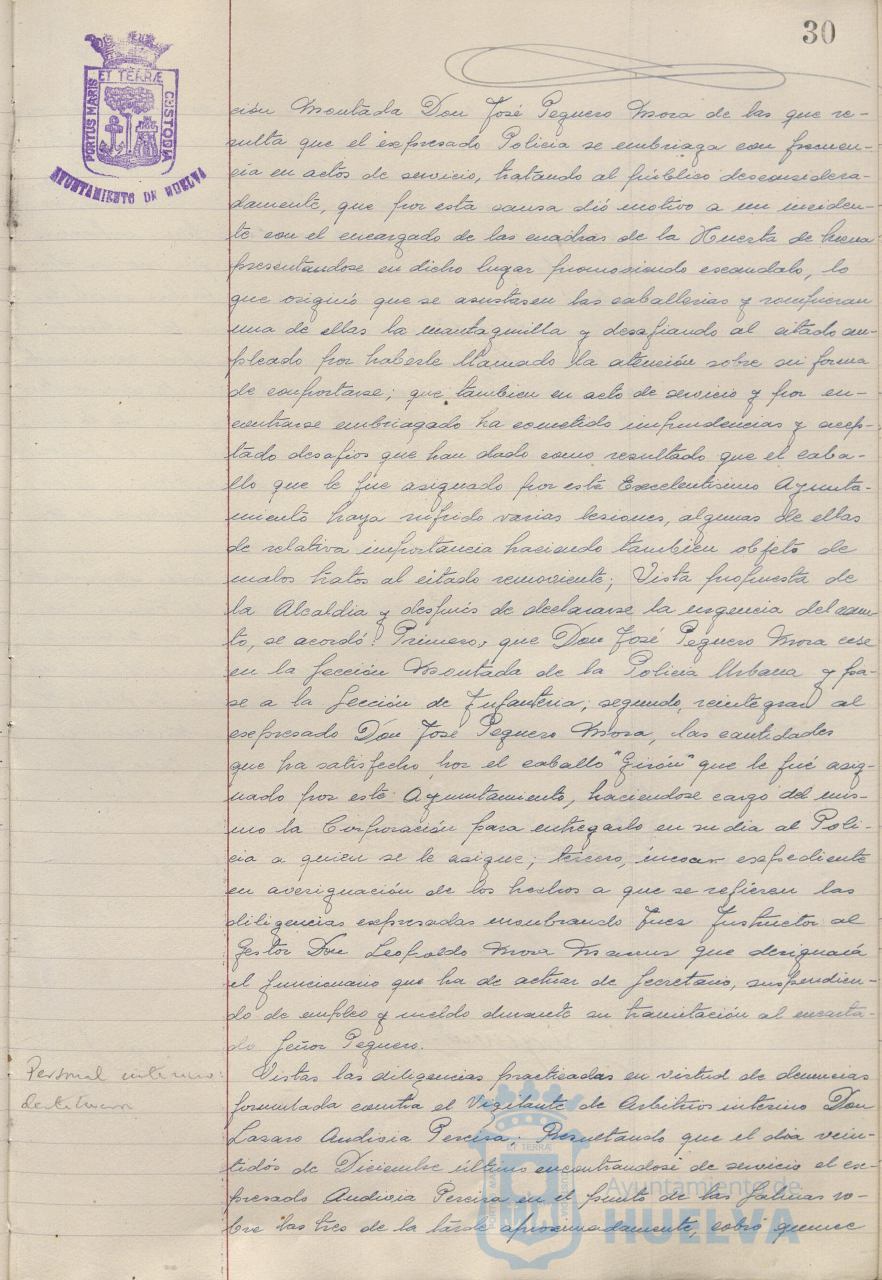 30
PORTUS MARIS ET TERRÆ CUSTODIA
AYUNTAMIENTO DE HUELVA
ción Montada Don José Peguero Mora de las que re-
sulta que el expresado Policia se embriaga con frecuen-
cia en actos de servicio, tratando al público desconsidera-
damente, que por esta causa dió motivo a un inciden-
te con el encargado de las cuadras de la Huerta de
presentandose en dicho lugar promoviendo escandalo, lo
que originó que se asustasen las caballerias y rompieran
una de ellas la mantaquilla y desafiando al citado em-
pleado por haberle llamado la atención sobre su forma
de comportarse; que tambien en acto de servicio y por en-
contrarse embriagado ha cometido imprudencias y acep-
tado desafios que han dado como resultado que el caba-
llo que le fue asignado por este Excelentisimo Ayunta-
miento haya sufrido varias lesiones, algunas de ellas
de relativa importancia haciendo tambien objeto de
malos tratos al citado semoviente; Vista propuesta de
la Alcaldia y después de declararse la urgencia del asun-
to, se acordó: Primero, que Don José Peguero Mora cese
en la Sección Montada de la Policia Urbana y pa-
se a la Sección de Infanteria; segundo, reintegrar al
expresado Don José Peguero Mora, las cantidades
que ha satisfecho por el caballo "Girón" que le fué asig-
nado por este Ayuntamiento, haciendose cargo del mis-
mo la Corporación para entregarlo en su dia al Poli-
cia a quien se le asigne; tercero, incoar expediente
en averiguación de los hechos a que se refieren las
diligencias expresadas nombrando Juez Instructor al
Gestor Don Leopoldo Mora que designará
el funcionario que ha de actuar de Secretario, suspendien-
do de empleo y sueldo durante su tramitación al encarta-
do Señor Peguero.
Personal interino:
destitucion
Vistas las diligencias practicadas en virtud de denuncias
formulada contra el Vigilante de Arbitrios interino Don
Lazaro Audivia Pereira; Resultando que el dia vein-
tidós de Diciembre último encontrandose de servicio el ex-
presado Audivia Pereira en el punto de las Salinas so-
bre las tres de la tarde aproximadamente, cobró quince
Ayuntamiento de
HUELVA